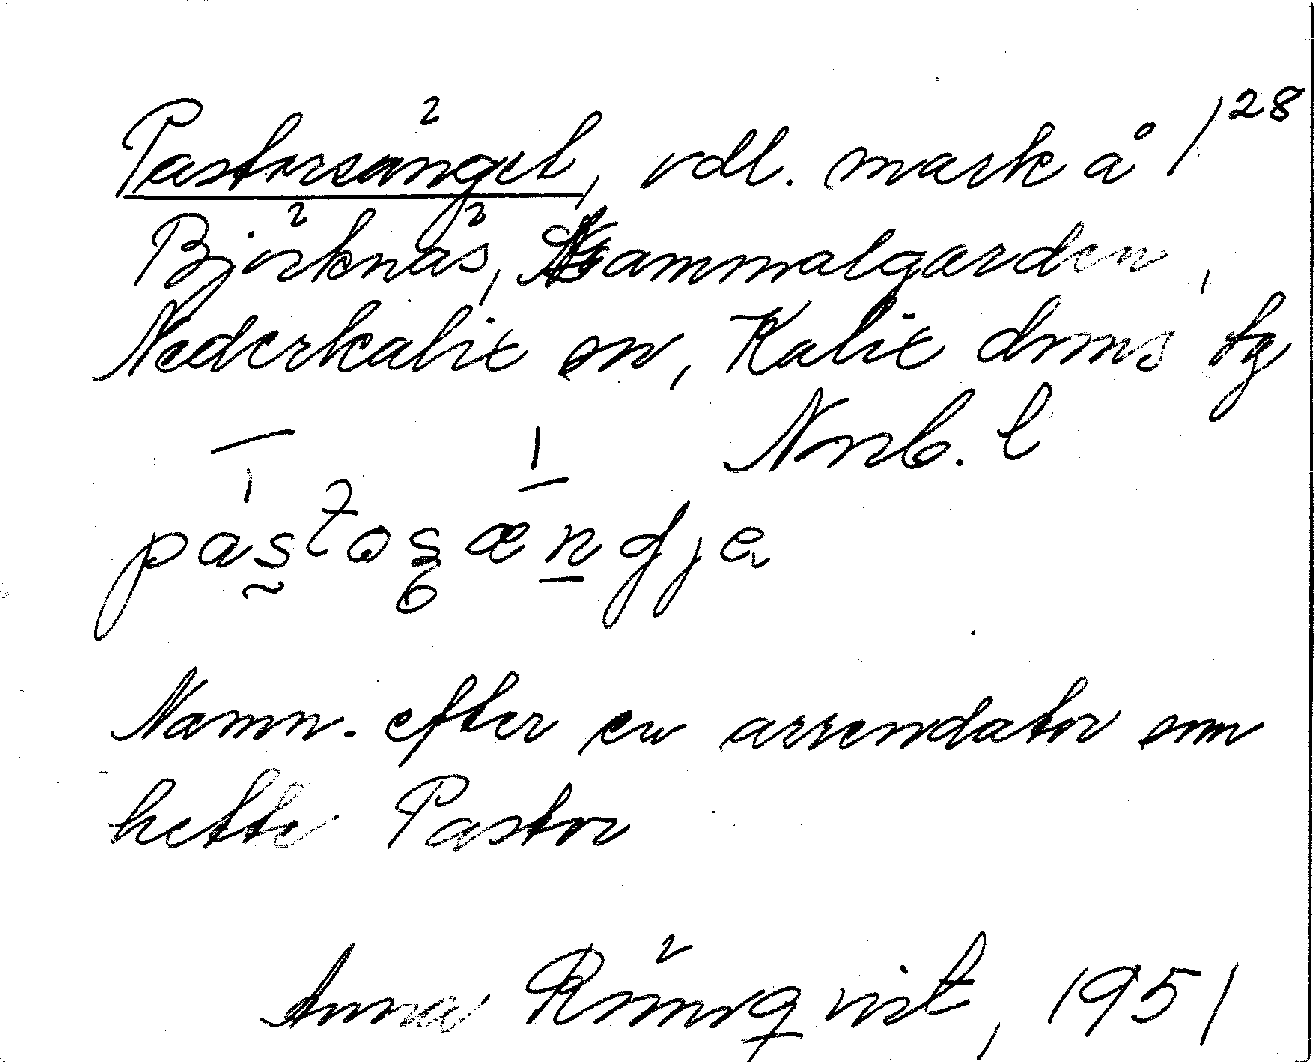 Pastorsänget, odl. mark å 128
Björknäs, Gammalgården,
Nederkalix sn, Kalix doms tg
Nrrb. l
pastosændja
Namn. efter en arrendator som
hette Pastor
Anna Rönnqvist, 1951